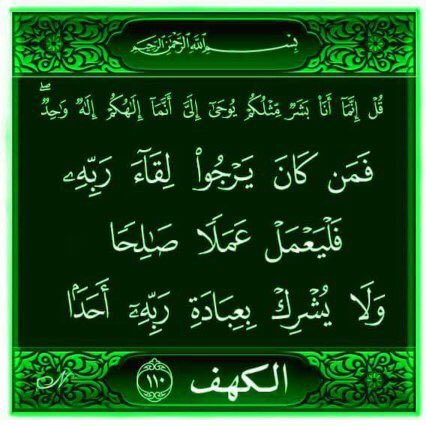 بِسْمِ ٱللَّهِ ٱلرَّحْمَٰنِ ٱلرَّحِيمِ
قُلْ إِنَّمَآ أَنَا۠ بَشَرٌ مِّثْلُكُمْ يُوحَىٰٓ إِلَىَّ أَنَّمَآ إِلَٰهُكُمْ إِلَٰهٌ وَٰحِدٌ ۖ
فَمَن كَانَ يَرْجُوا۟ لِقَآءَ رَبِّهِۦ
فَلْيَعْمَلْ عَمَلًا صَٰلِحًا
وَلَا يُشْرِكْ بِعِبَادَةِ رَبِّهِۦٓ أَحَدًۢا
الكهف ١١٠